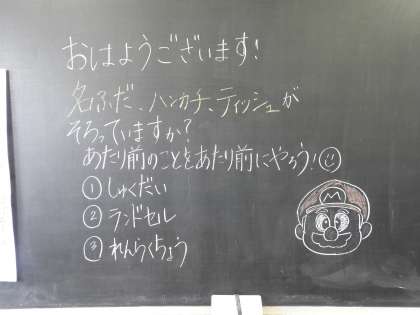 おはようございます!
名ふだ、ハンカチ、ティッシュが
そろっていますか?
あたり前のことをあたり前にやろう!
①しゅくだい
②ランドセル
③れんらくちょう
M